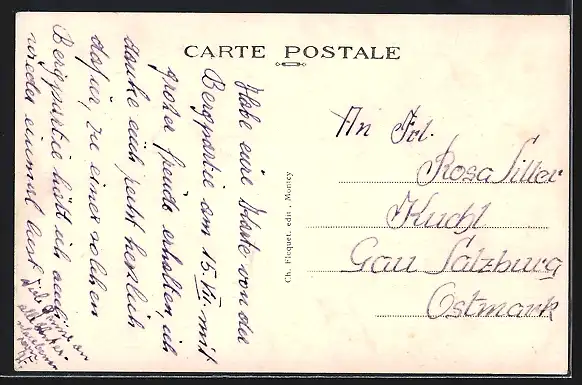 CARTE POSTALE
Habe eure Karte von der
Bergpartie am 15. VII. mit
großer Freude erhalten, ich
danke euch recht herzlich
dafür, zu einer solchen
Bergpartie hätt ich auch
wieder einmal Lust
Viele Grüße an
alle
Ch. Floquet, edit., Montey
An Frl.
Rosa Siller
Kuchl
Gau Salzburg
Ostmark